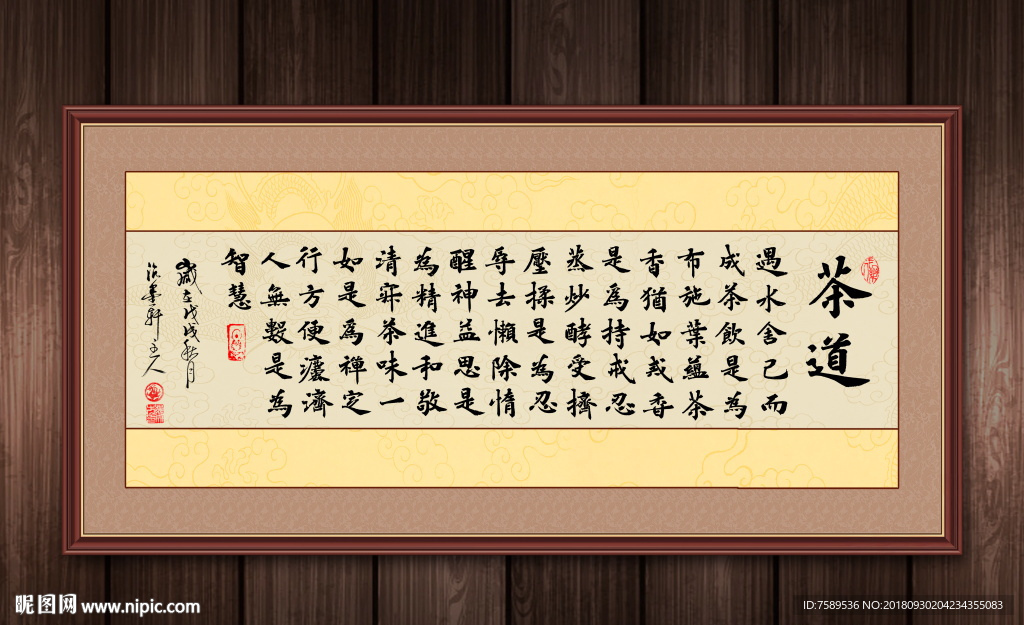 茶道
遇水舍己而
成茶飲是為
布施葉蘊茶
香猶如戒香
是爲持戒忍
蒸炒酵受擠
壓揉是為忍
辱去懶除惰
醒神益思是
為精進和敬
清寂茶味一
如是爲禪定
行方便灋濟
人無數是為
智慧
歲在戊戌秋月
墨軒主人
昵图网 www.nipic.com
ID:7589536 NO:20180930204234355083